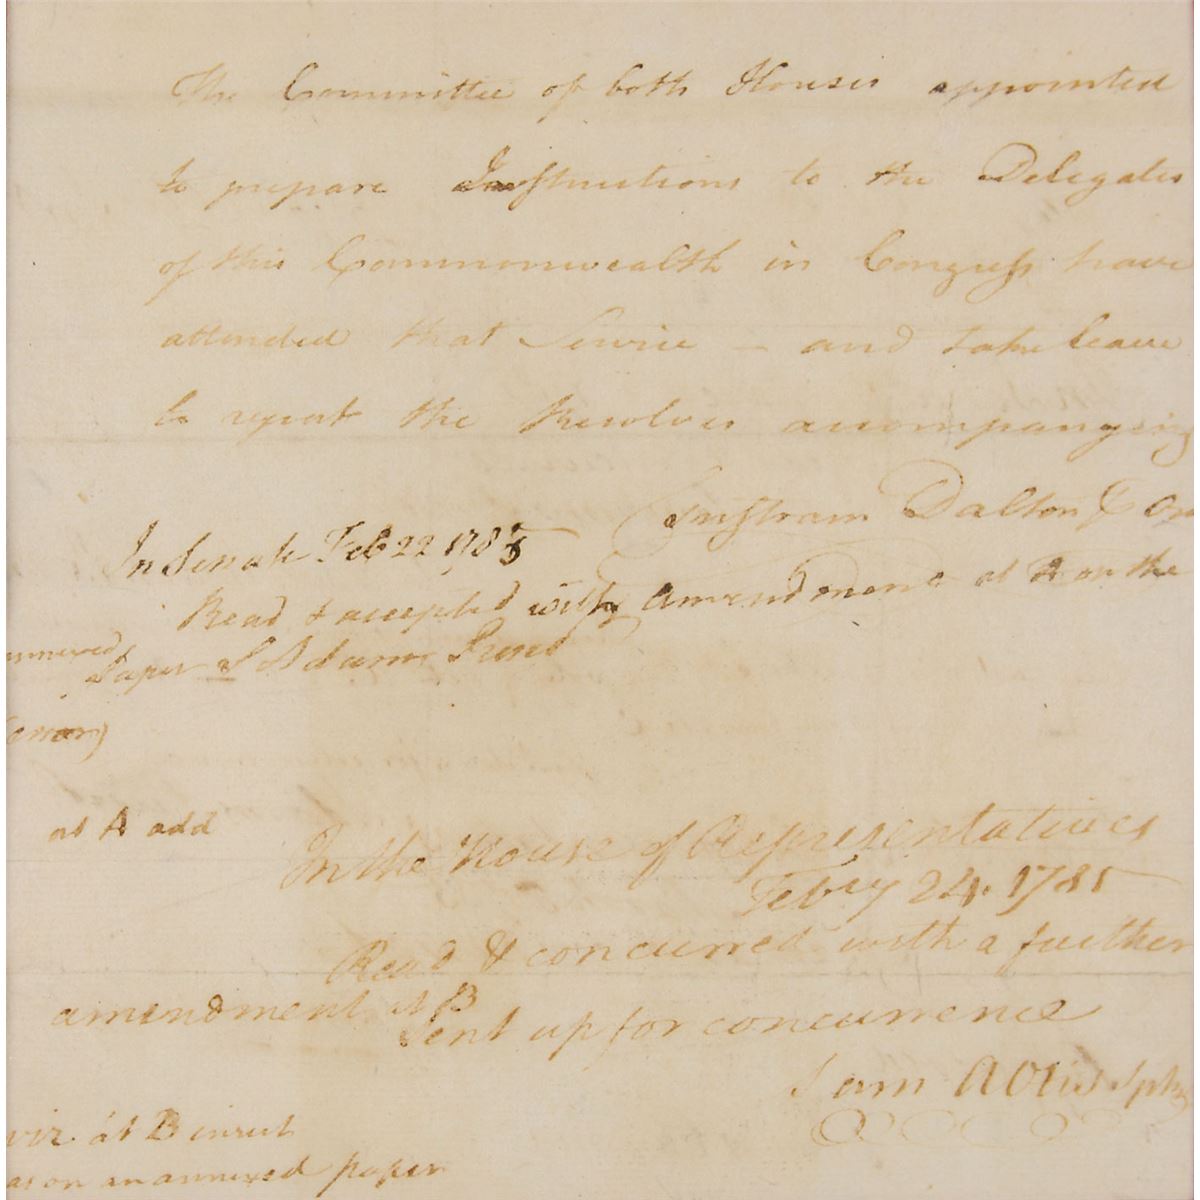 The Committee of both Houses appointed
to prepare Instructions to the Delegates
of this Commonwealth in Congress have
attended that Service – and take leave
to report the Resolves accompanying
Tristram Dalton
In Senate Feb 22 1785
Read & accepted with amendment at A on the
annexed
Paper S Adams Presd
at A add
In the House of Representatives
Feby 24. 1785
Read & concurred with a further
amendment at B
Sent up for concurrence
Sam A Otis Spkr
viz. at B insert
as on an annexed paper